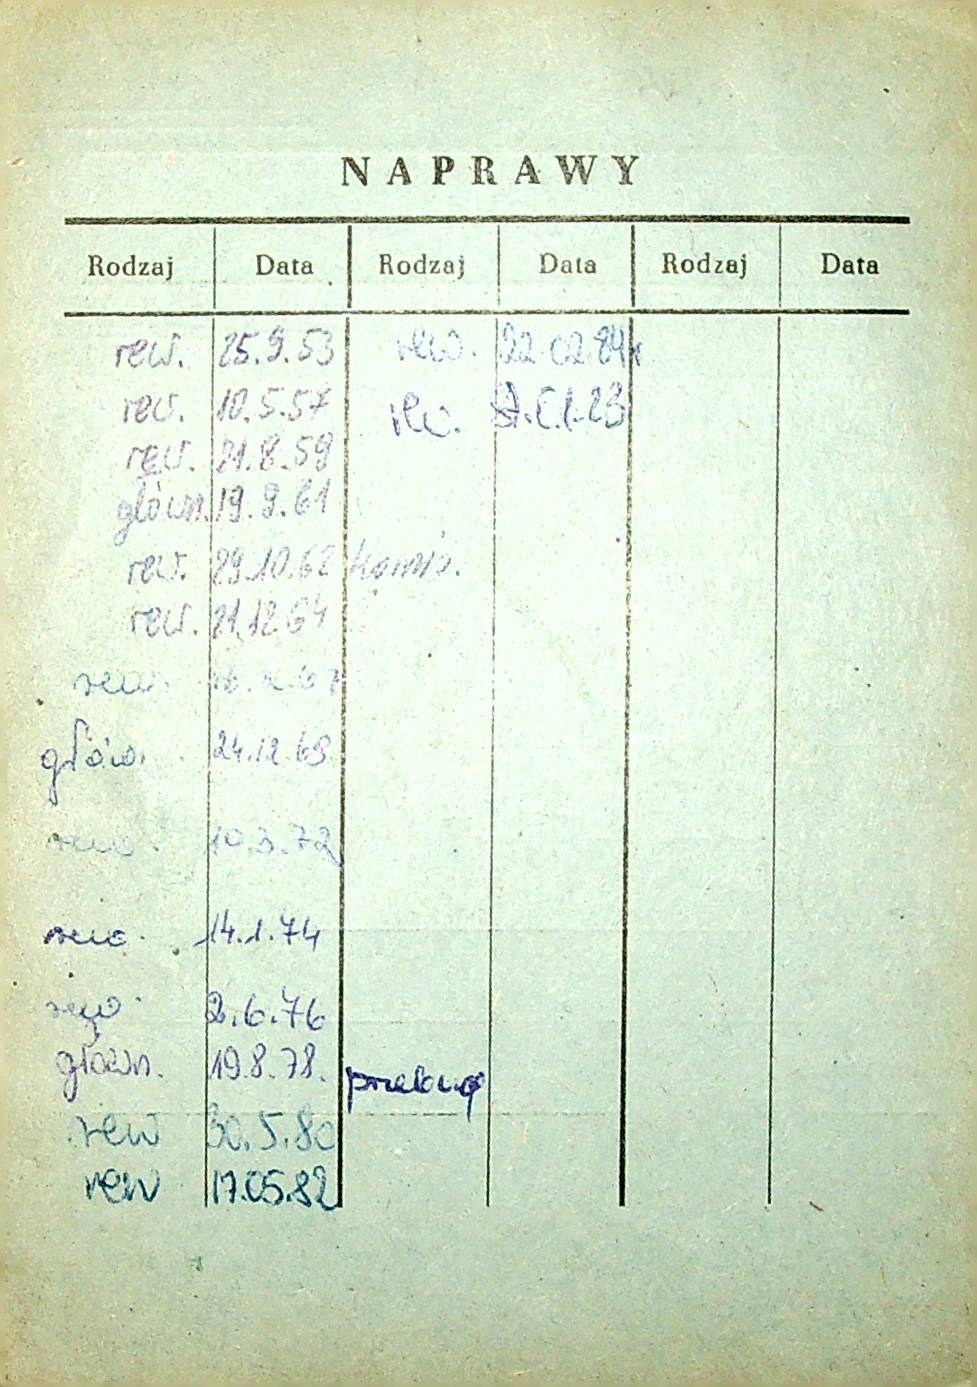 NAPRAWY
Rodzaj Data Rodzaj Data Rodzaj Data
rew. 25.9.53 rew. 22.02.84r
rew. 10.5.57 rew.
rew. 21.8.59
główn. 19.9.61
rew. 29.10.62 komis.
rew. 21.12.64
rew.
główn. 24.12.69
rew. 10.3.72
rew. 14.1.74
rew. 2.6.76
główn. 19.8.78.
rew 30.5.80
rew 17.05.82